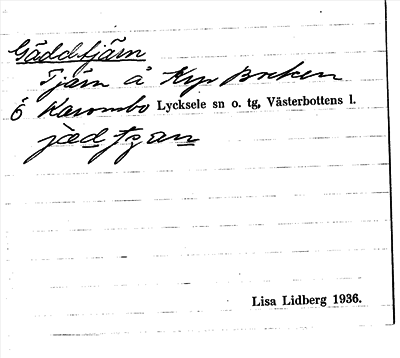 Gäddtjärn
Tjärn å Kyp Backen
Ö Karombo Lycksele sn o. tg, Västerbottens l.
jæd
Lisa Lidberg 1936.